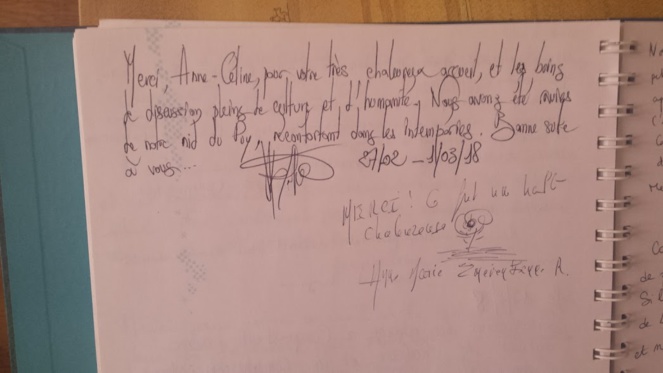 Merci, Anne-Céline, pour votre très chaleureux accueil, et les brins
de discussion pleins de culture et d'humanité. Nous avons été ravies
de notre nid du Puy, réconfortant dans les intempéries. Bonne suite
à vous...
27/02 - 1/03/18
MERCI! Ce fut un halte
chaleureuse
Marie